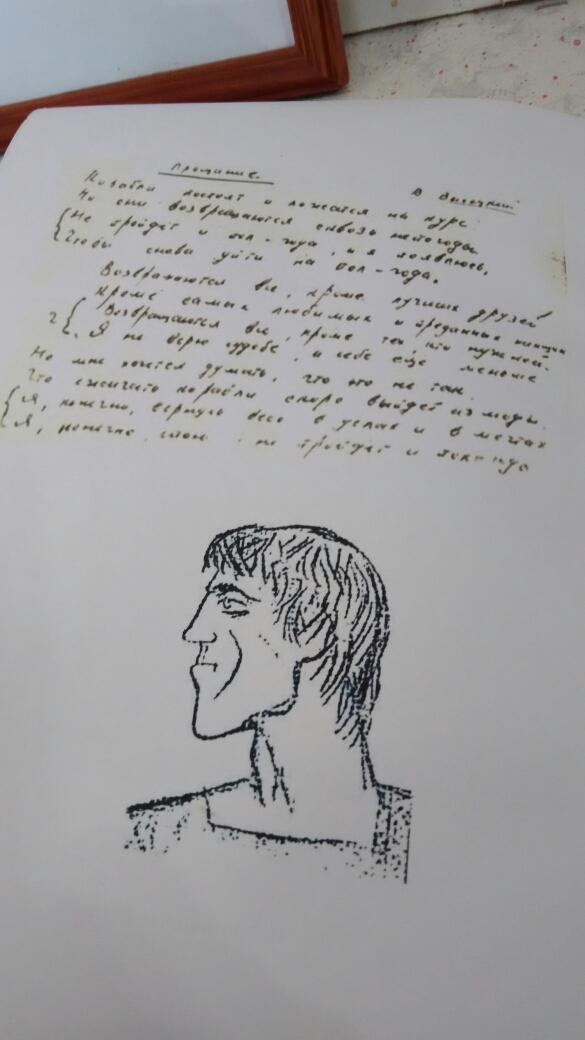 Прощание.
В Высоцкий
Корабли постоят и ложатся на курс
Но они возвращаются сквозь непогоды
Не пройдёт и пол-года, и я появлюсь,
Чтобы снова уйти на пол-года.
Возвращаются все, кроме лучших друзей
Кроме самых любимых и преданных женщин
Возвращаются все, кроме тех, кто нужней.
Я не верю судьбе, и себе ещё меньше
Но мне хочется думать, что это не так
Что сжигать корабли скоро выйдет из моды.
Я, конечно, вернусь весь в и в мечтах
Я, конечно, спою не пройдёт и пол-года